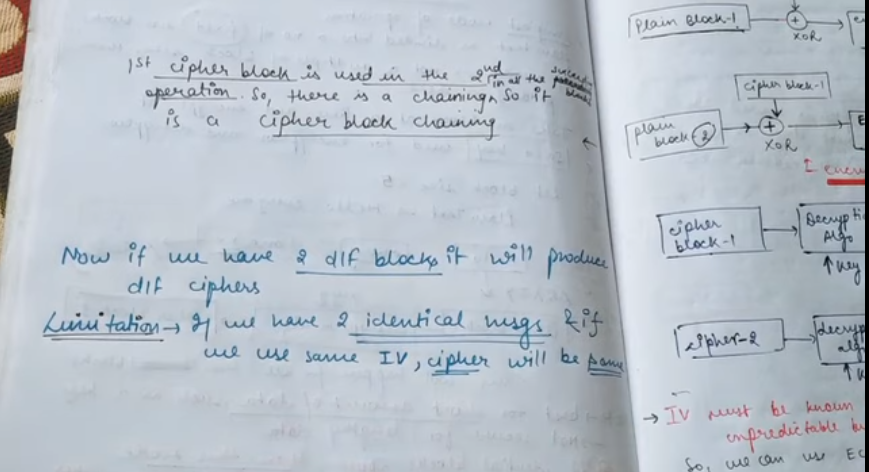 1st cipher block is used in the 2nd
operation. So, there is a chaining in all the blocks So it
is a cipher block chaining
Now if we have 2 dif blocks it will produce
dif ciphers
Limitation → If we have 2 identical msgs & if
we use same IV, cipher will be same
plain block-1
XOR
cipher block-1
plain
block 2
XOR
E
I
cipher
block-1
Decrypti
Algo
↑ key
cipher-2
decryp
alg
↑ k
→ IV must be known
unpredictable b
So, we can use EC